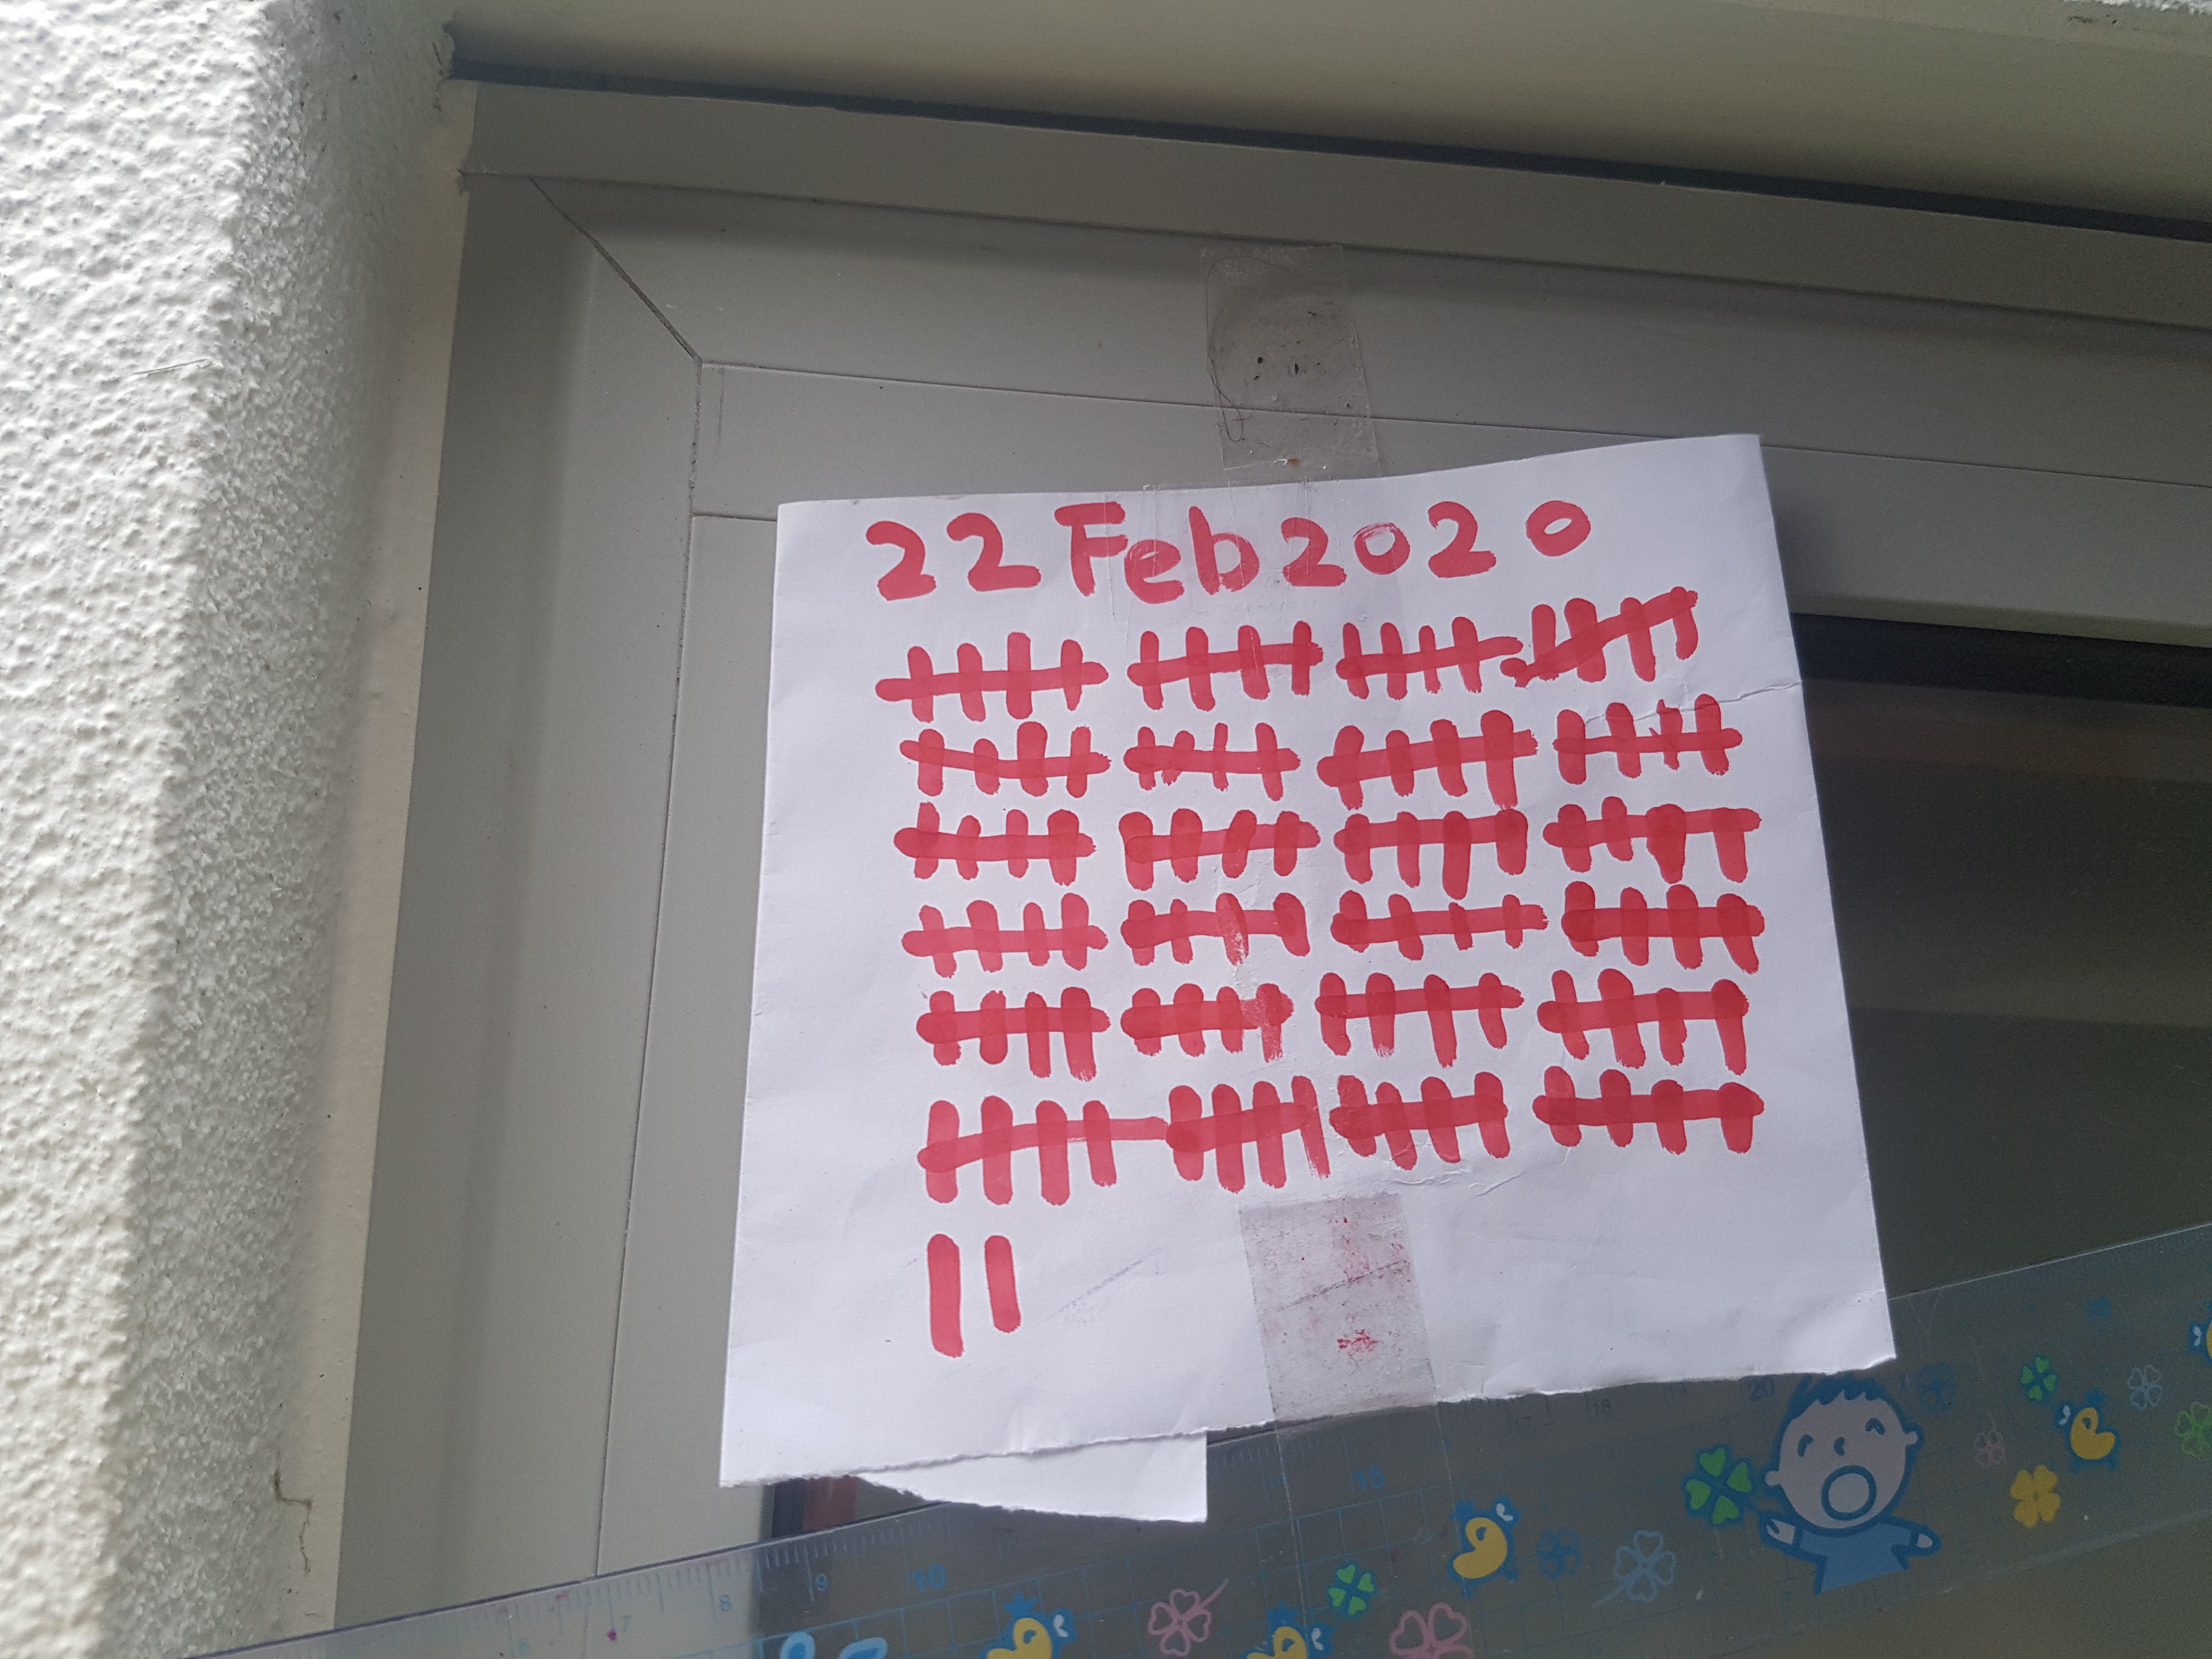 22 Feb 2020
6 7 8 9 10 14 15 17 18 19 20